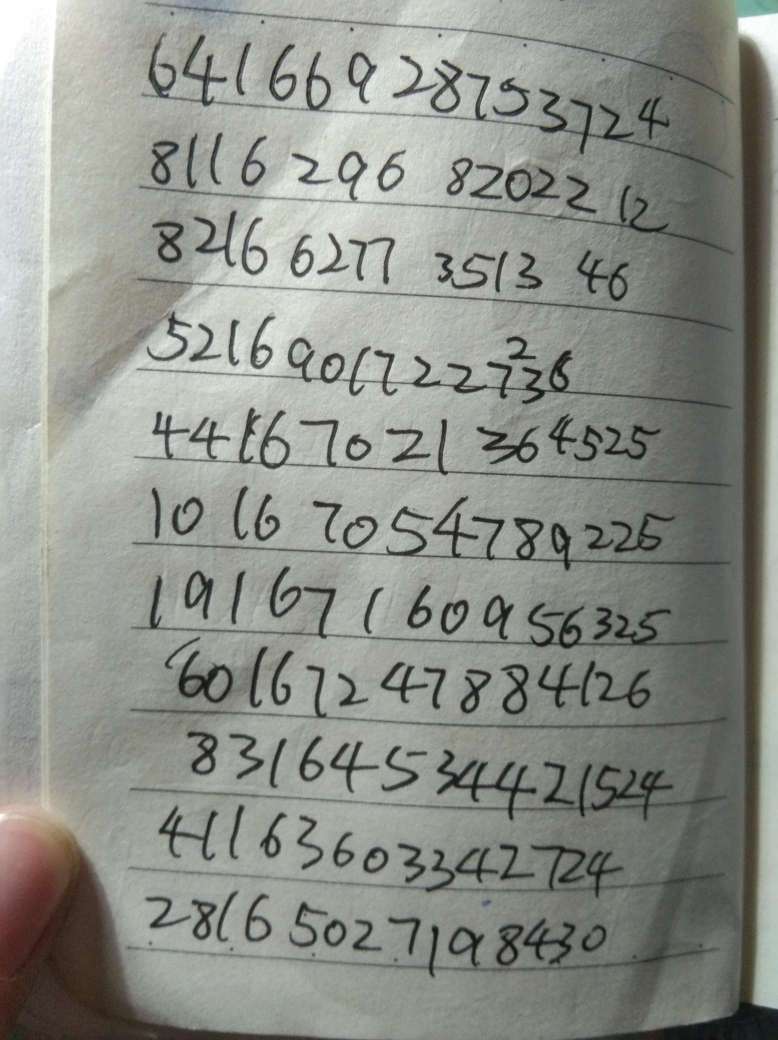 6416692875 3724
8116 296 82022 12
8216 6277 3513 46
52169017227236
44167021364525
1016 7054789225
19167160956325
6016724788 4126
83164534421524
41163603342724
28165027198430